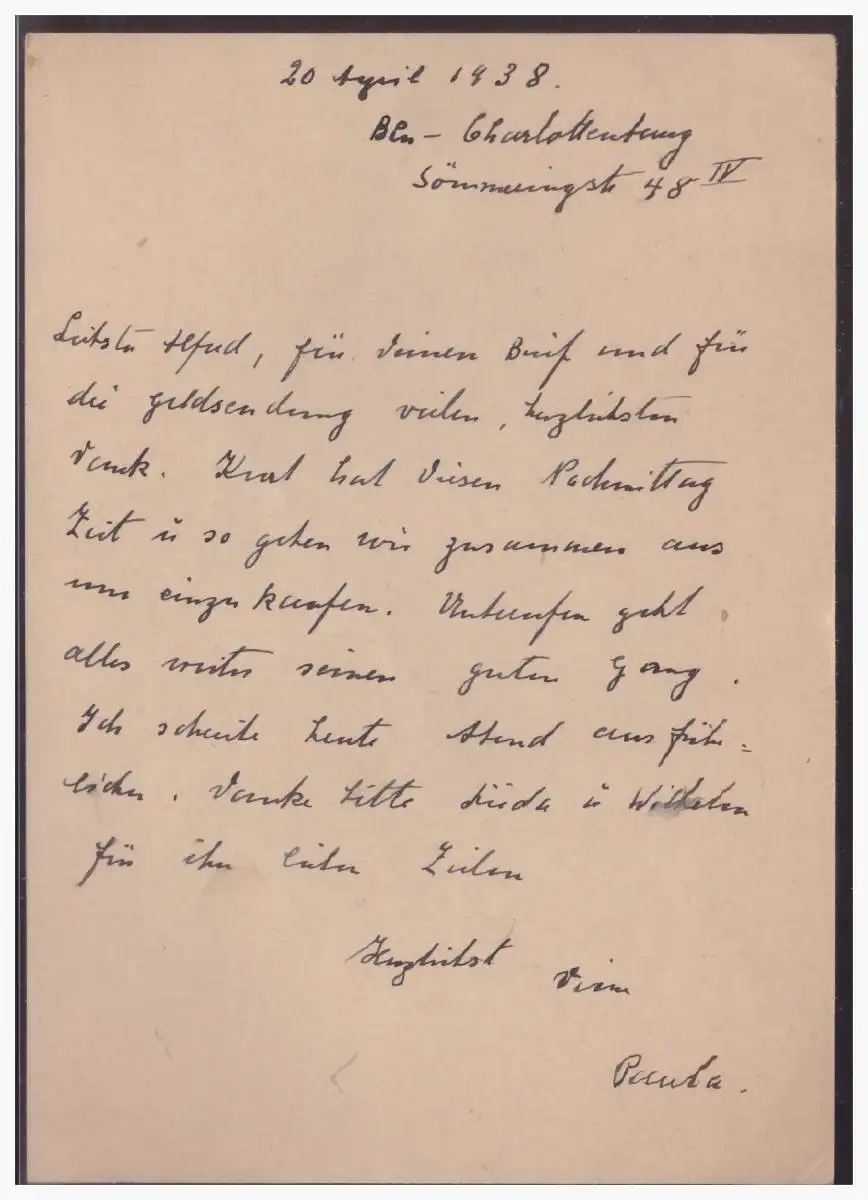 20 April 1938.
Bln – Charlottenburg
Sömmeringstr 48 IV
Liebster Alfred, für Deinen Brief und für
die Geldsendung vielen, herzlichsten
Dank. Kurt hat diesen Nachmittag
Zeit u so gehen wir zusammen aus
um einzukaufen. geht
alles weiter seinen guten Gang.
Ich schreibe heute Abend ausführ=
licher. Danke bitte u Wilhelm
für ihre lieben Zeilen
Herzlichst Deine
Paula.